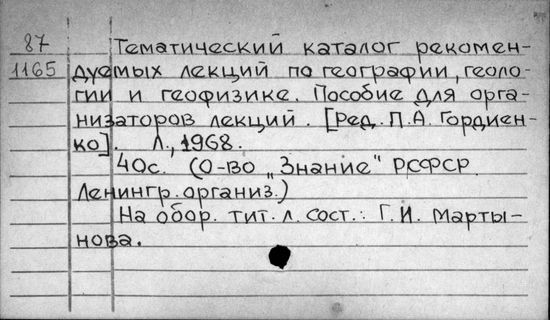 87 Тематический каталог рекомен-
1165 дуемых лекций по географии, геоло-
гии и геофизике. Пособие для орга-
низаторов лекций. [Ред. П.А. Гордиен-
ко]. Л., 1968.
40с. (О-во „Знание" РСФСР.
Ленингр. организ.)
На обор. тит. л. сост.: Г.И. Марты-
нова.